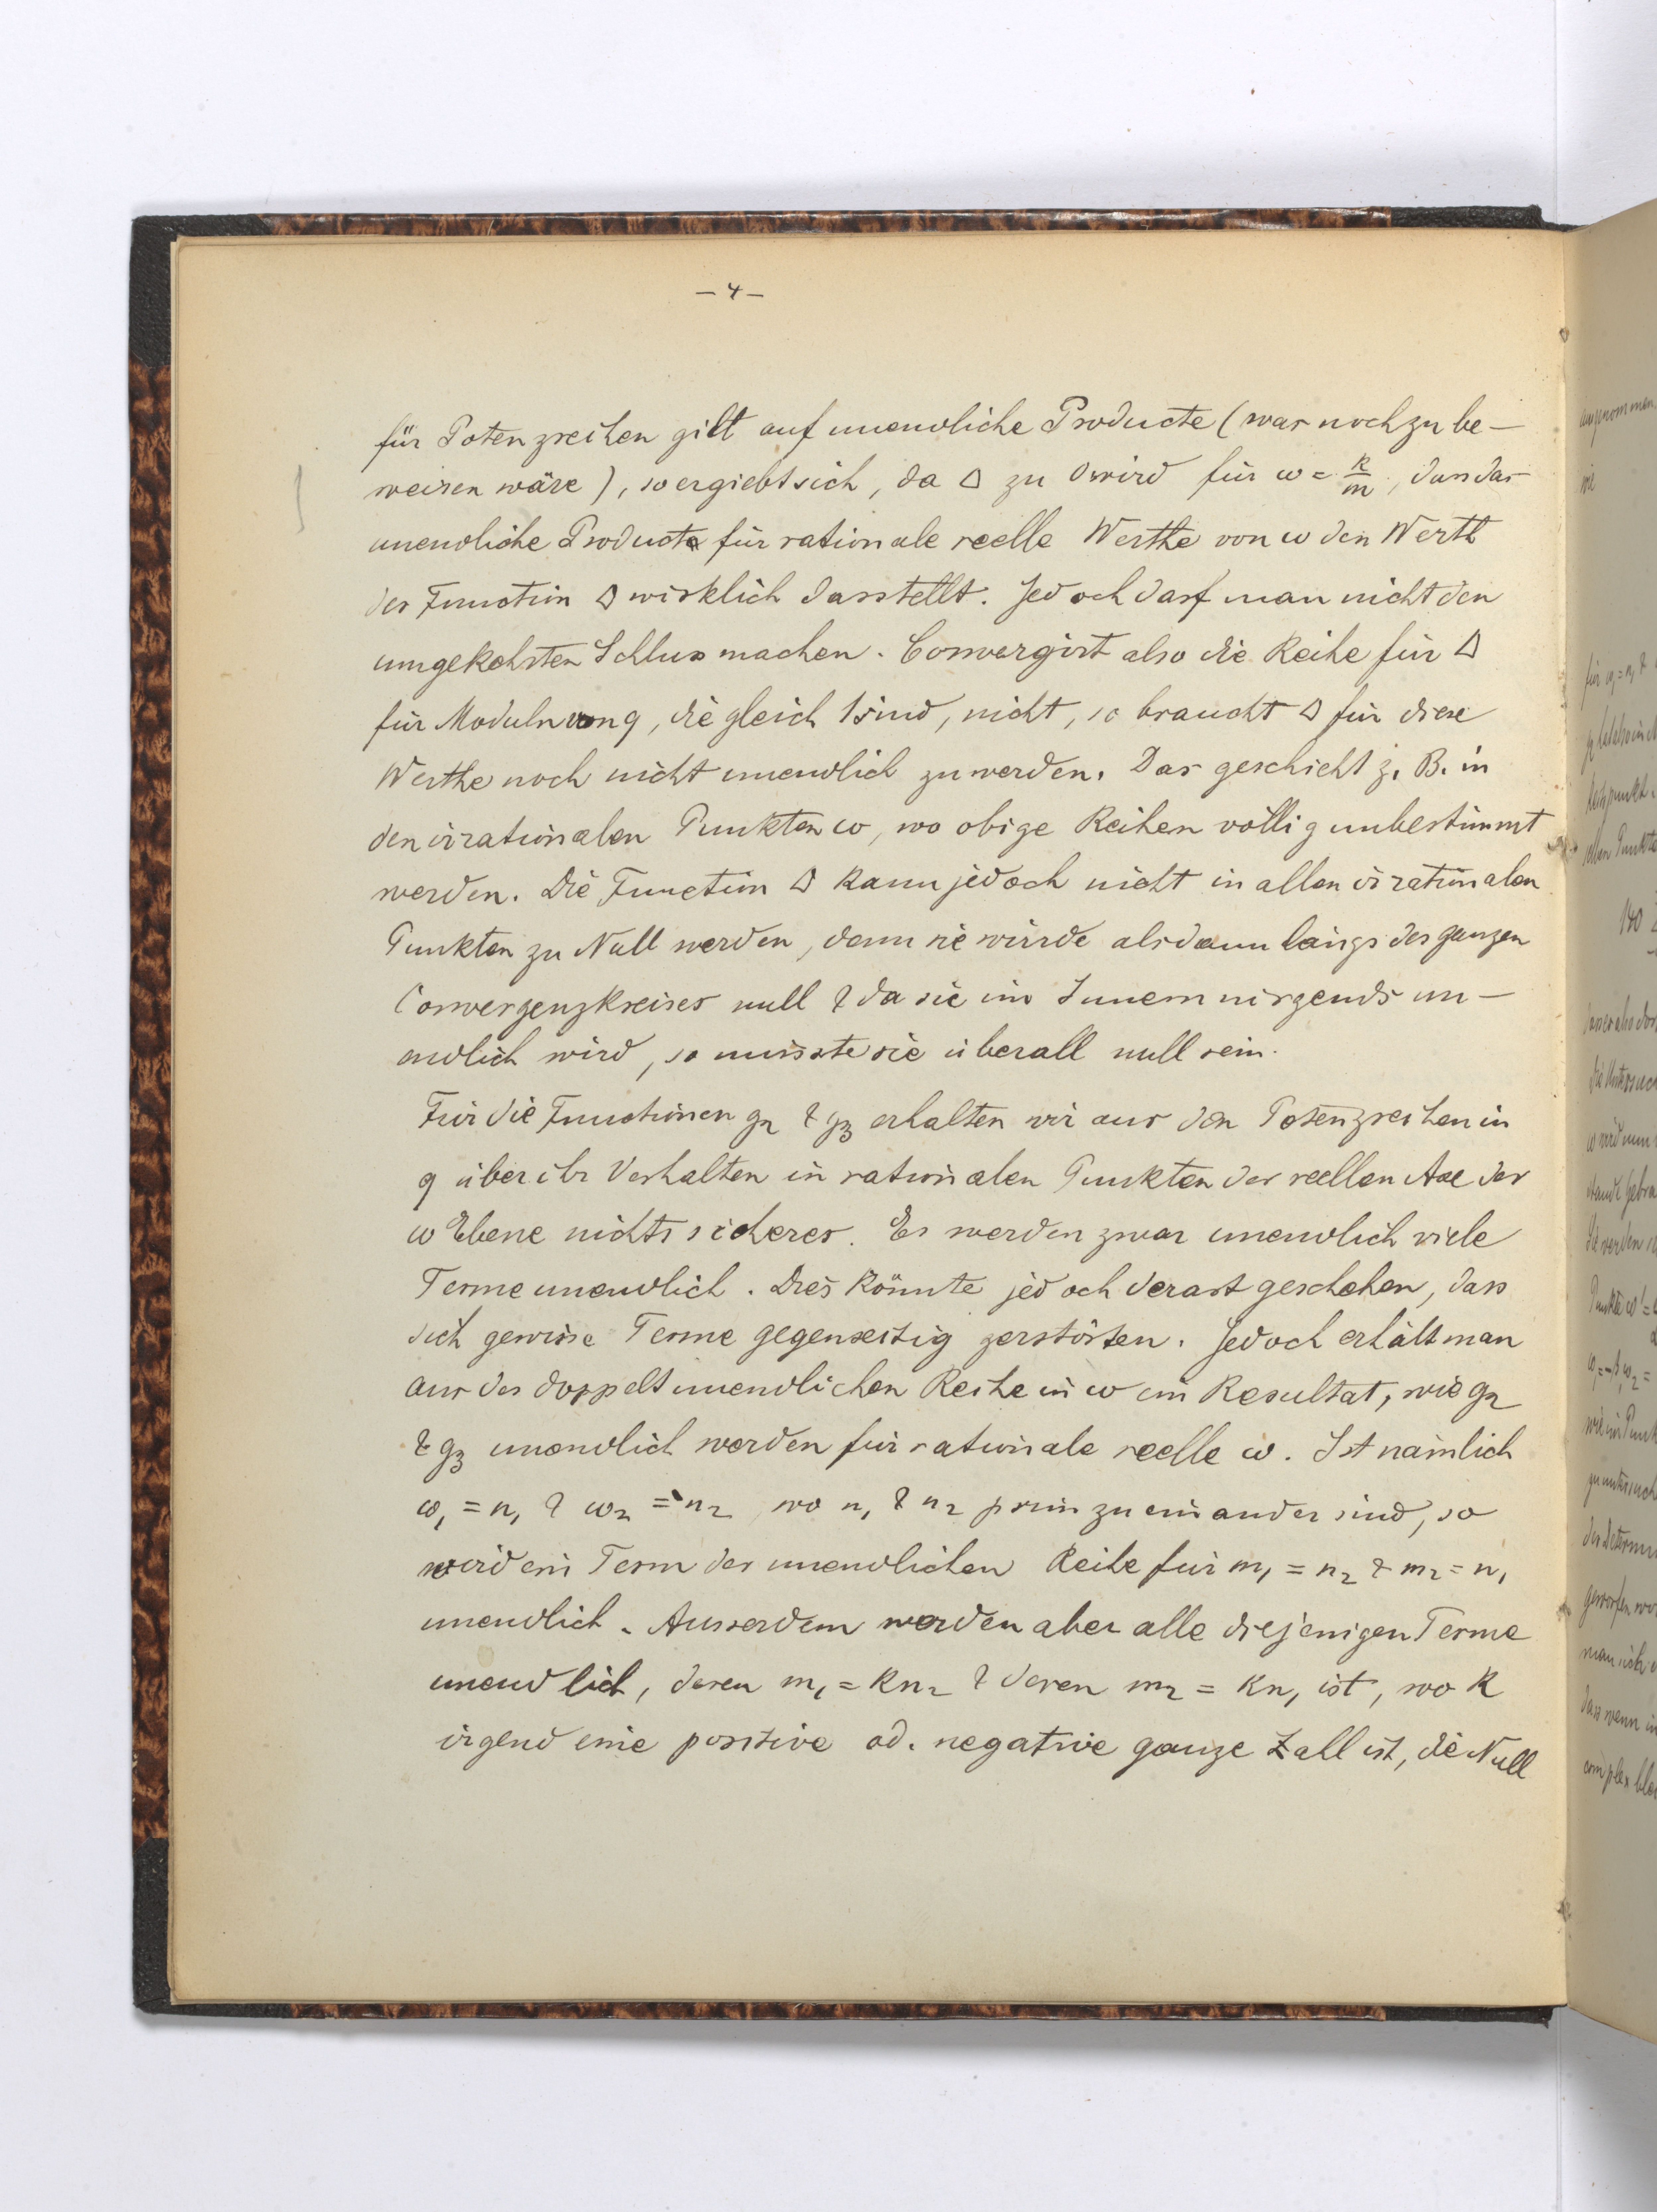 – 4 –
für Potenzreihen gilt auf unendliche Producte (was noch zu be–
weisen wäre), so ergiebt sich, da Δ zu 0 wird für ω = k/m, dass das
unendliche Product für rationale reelle Werthe von ω den Werth
der Function Δ wirklich darstellt. Jedoch darf man nicht den
umgekehrten Schluss machen. Convergirt also die Reihe für Δ
für Moduln von q, die gleich 1 sind, nicht, so braucht Δ für diese
Werthe noch nicht unendlich zu werden. Das geschieht z. B. in
den irrationalen Punkten ω, wo obige Reihen völlig unbestimmt
werden. Die Function Δ kann jedoch nicht in allen irrationalen
Punkten zu Null werden, denn sie würde alsdann längs des ganzen
Convergenzkreises null & da sie im Innern nirgends un–
endlich wird, so müsste sie überall null sein.
Für die Functionen g2 & g3 erhalten wir aus den Potenzreihen in
q über ihr Verhalten in rationalen Punkten der reellen Axe der
ω Ebene nichts sicheres. Es werden zwar unendlich viele
Terme unendlich. Dies könnte jedoch derart geschehen, dass
sich gewisse Terme gegenseitig zerstörten. Jedoch erhält man
aus der doppelt unendlichen Reihe in ω ein Resultat, wie g2
& g3 unendlich werden für rationale reelle ω. Ist nämlich
ω1 = n1 & ω2 = n2, wo n1 & n2 prim zu einander sind, so
wird ein Term der unendlichen Reihe für m1 = n2 & m2 = n1
unendlich. Ausserdem werden aber alle diejenigen Terme
unendlich, deren m1 = kn2 & deren m2 = kn1 ist, wo k
irgend eine positive od. negative ganze Zahl ist, die Null